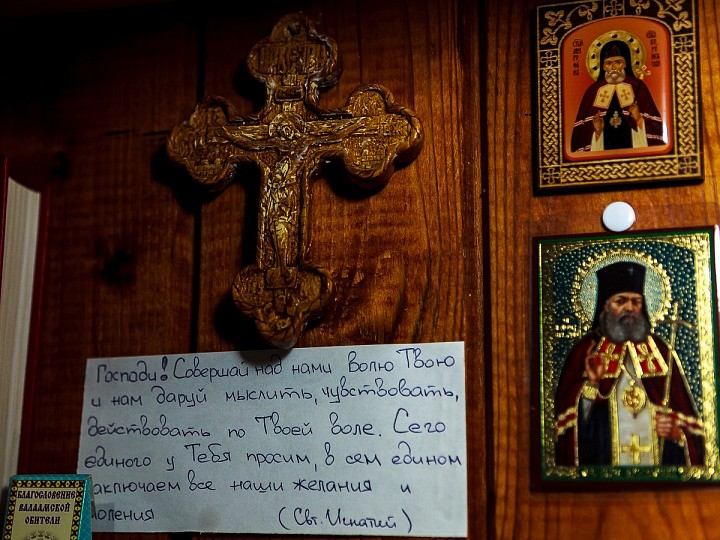 Господи! Совершай над нами волю Твою
и нам даруй мыслить, чувствовать,
действовать по Твоей воле. Сего
единого у Тебя просим, в сем едином
аключаем все наши желания и
моления (Свт. Игнатий)
БЛАГОСЛОВЕНИЕ
ВАЛААМСКОЙ
ОБИТЕЛИ